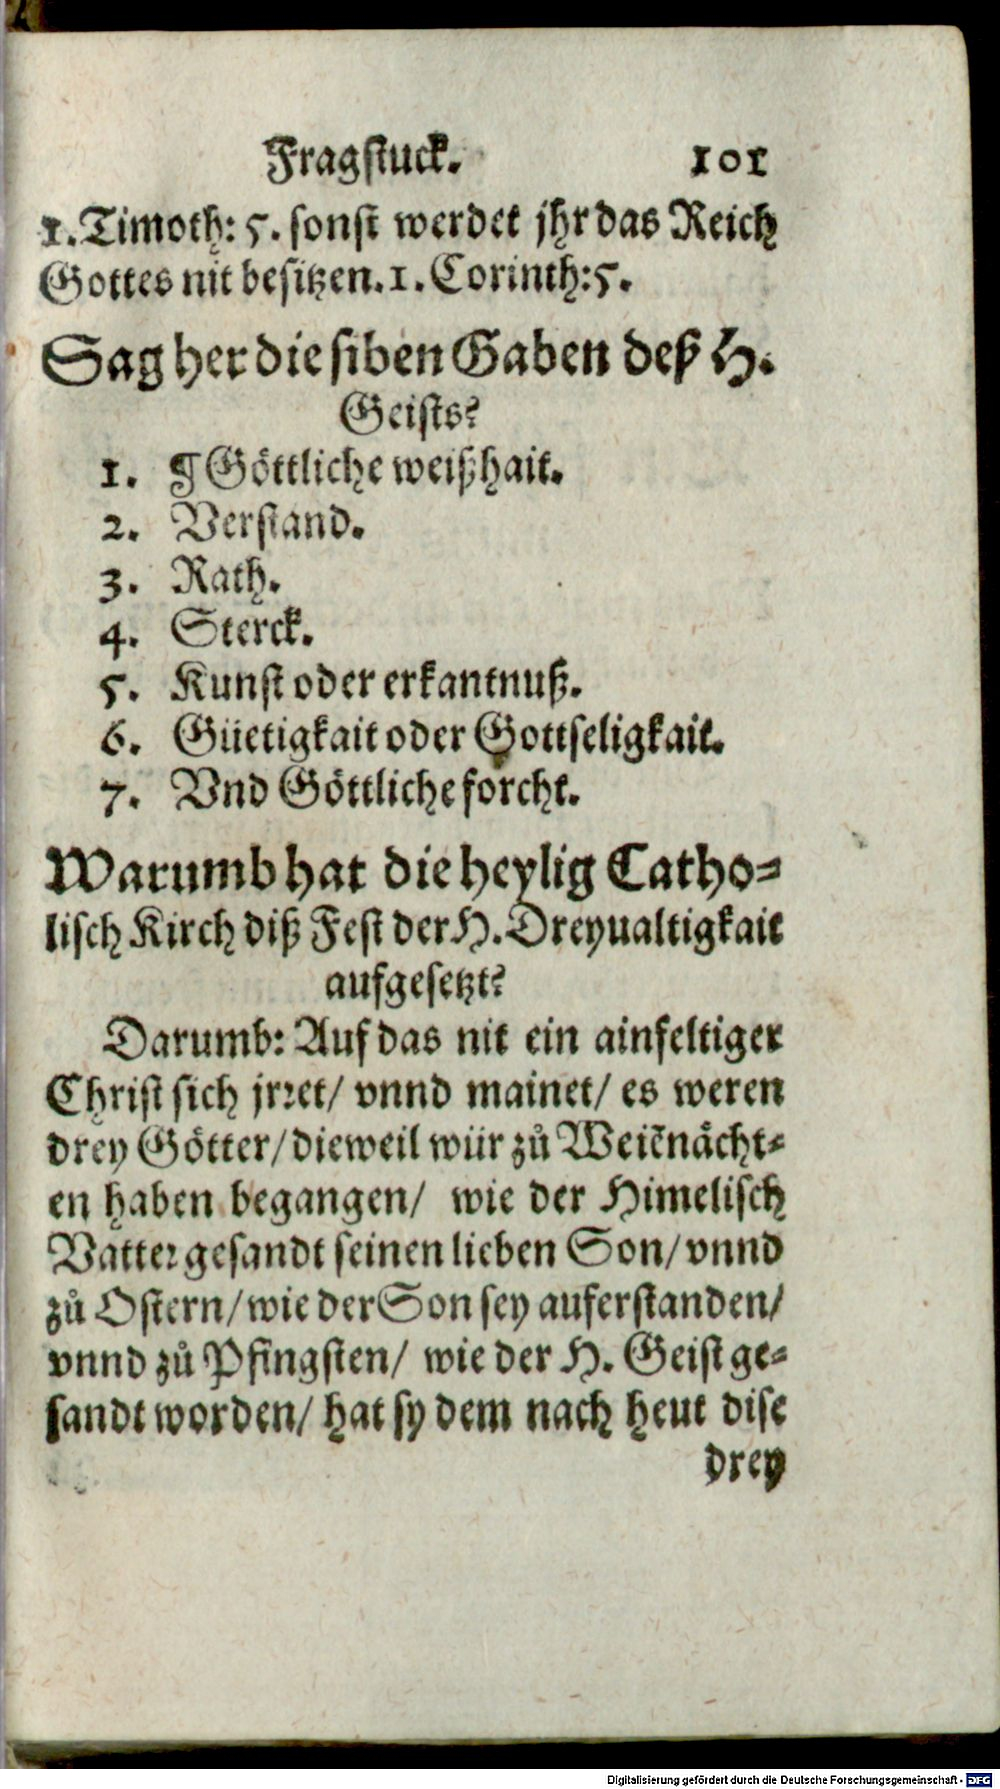 Fragstuck. 101
1. Timoth: 5. sonst werdet jhr das Reich
Gottes nit besitzen. 1. Corinth: 5.
Sag her die siben Gaben deß H.
Geists?
1. ¶ Göttliche weißhait.
2. Verstand.
3. Rath.
4. Sterck.
5. Kunst oder erkantnuß.
6. Güetigkait oder Gottseligkait.
7. Vnd Göttliche forcht.
Warumb hat die heylig Catho⸗
lisch Kirch diß Fest der H. Dreyualtigkait
aufgesetzt?
Darumb: Auf das nit ein ainfeltiger
Christ sich jrret/ vnnd mainet/ es weren
drey Götter/ dieweil wür zů Weiẽnächt⸗
en haben begangen/ wie der Himelisch
Vatter gesandt seinen lieben Son/ vnnd
zů Ostern/ wie der Son sey auferstanden/
vnnd zů Pfingsten/ wie der H. Geist ge⸗
sandt worden/ hat sy dem nach heut dise
drey
Digitalisierung gefördert durch die Deutsche Forschungsgemeinschaft - DFG